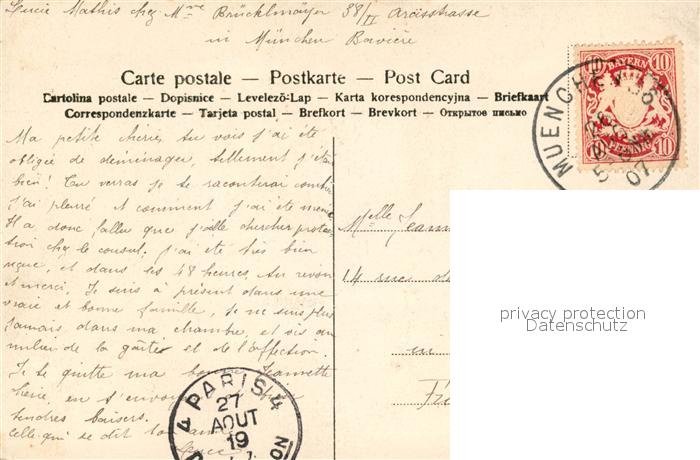 Lucie Mathis chez Mme Brücklmayer 38/II Arcisstrasse
in München Bavière
Carte postale — Postkarte — Post Card
Cartolina postale — Dopisnice — Levelező-Lap — Karta korespondencyjna — Briefkaart
Correspondenzkarte — Tarjeta postal — Brefkort — Brevkort — Открытое письмо
BAYERN
10 10
PFENNIG
MUENCHEN
07
Ma petite chérie, tu vois j'ai été
obligée de deminager, tellement j'étais
bien! Tu verras je te raconterai combien
j'ai pleuré et comment j'ai été
Il a donc fallu que j'aille chercher
chez le consul. J'ai été très bien
reçue, et dans les 48 heures. Au revoir
et merci. Je suis à présent dans une
vraie et bonne famille, je ne suis plus
jamais dans ma chambre, et vis au
milieu de la gaîté et de l'affection.
Je te quitte ma bonne Jeannette
chérie, en t'envoyant
tendres baisers.
Celle qui se dit ton amie
Lucie
Melle Jeann
14 rue
PARIS 4
27
AOUT
19
privacy protection
Datenschutz